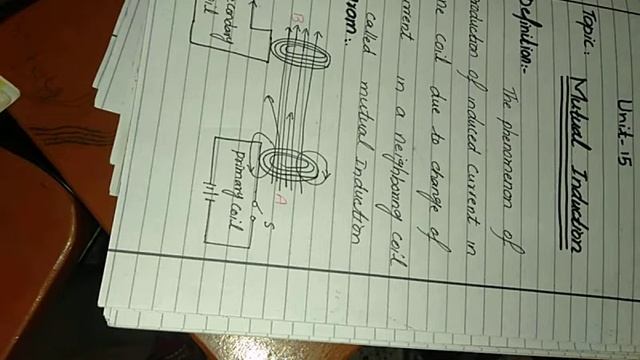 Unit-15
Topic: Mutual Induction
Definition:- The phenomenon of
production of induced current in
one coil due to change of
current in a neighbouring coil
called mutual Induction
B
A
S
Primary coil